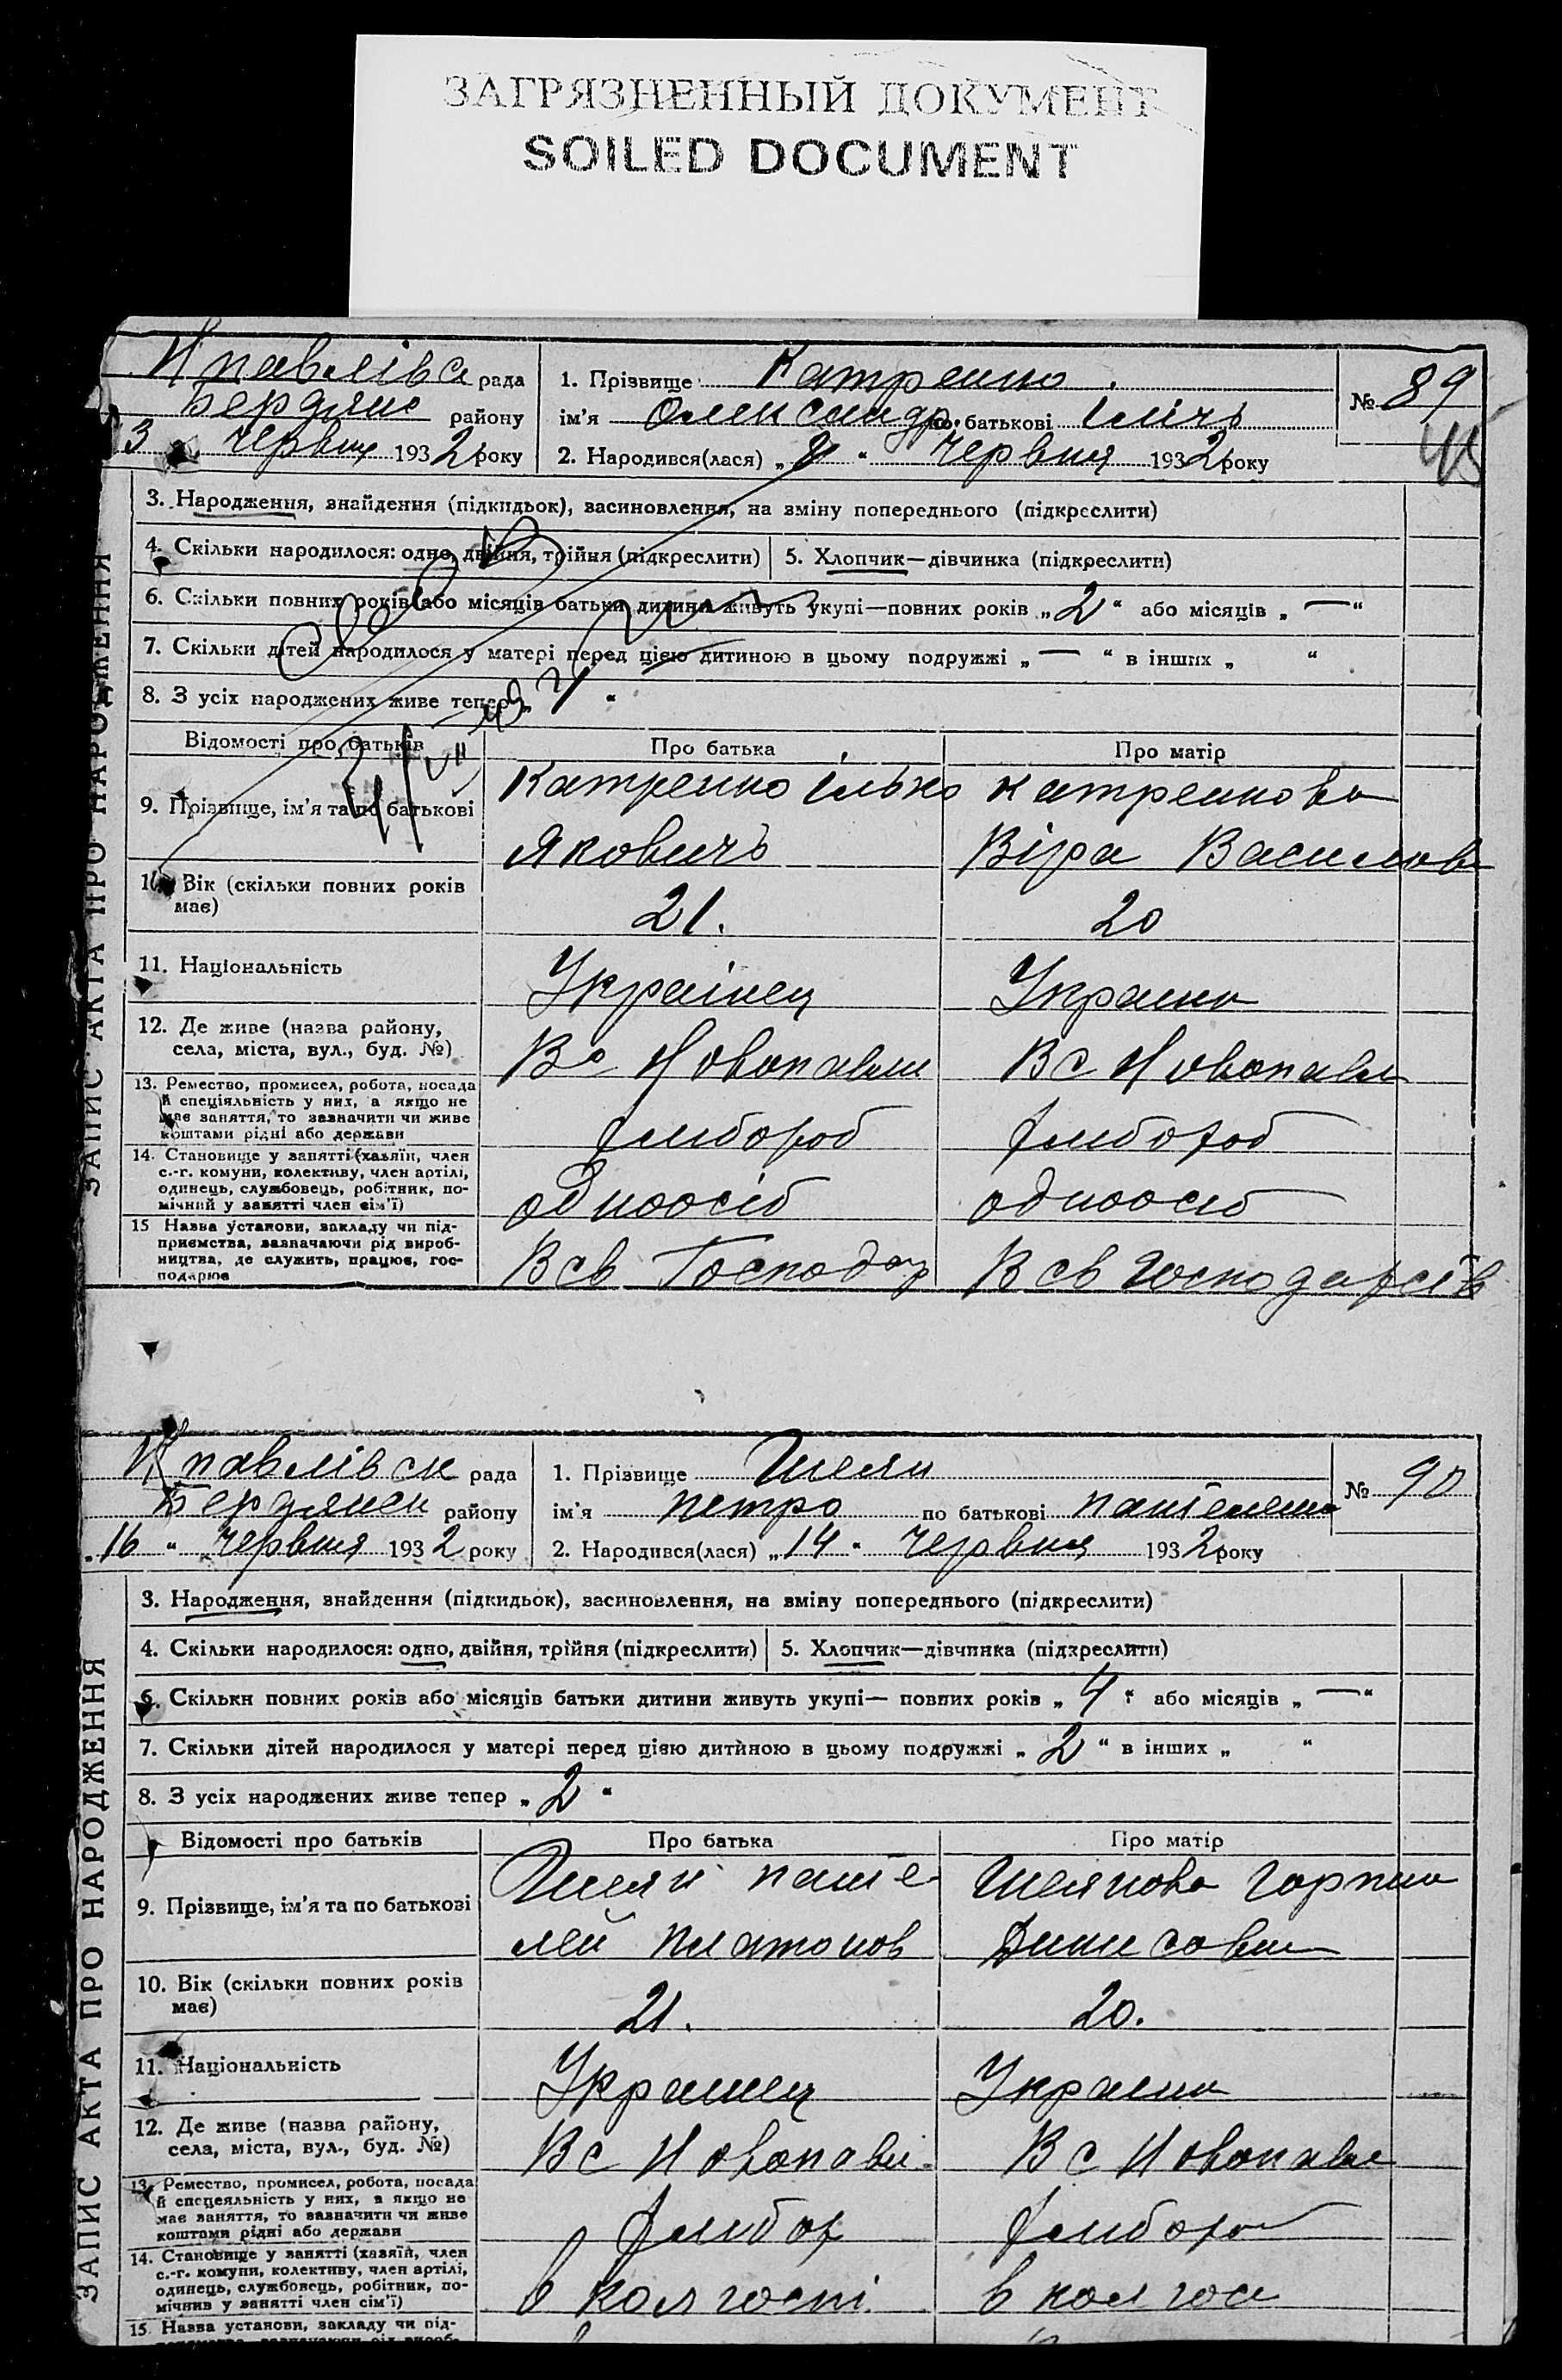 ЗАГРЯЗНЕННЫЙ ДОКУМЕНТ
SOILED DOCUMENT
Нпавлівс рада
Бердянс району
3 червня 1932 року
1. Прізвище Катренко
ім'я Олександр по батькові Ілічь
2. Народився(лася) „ “ Червня 1932 року
№ 89
45
ЗАПИС АКТА ПРО НАРОДЖЕННЯ
3. Народження, знайдення (підкидьок), васиновлення, на зміну попереднього (підкреслити)
4. Скільки народилося: одно, двійня, трійня (підкреслити)
5. Хлопчик—дівчинка (підкреслити)
6. Скільки повних років або місяців батьки дитини живуть укупі—повних років „2“ або місяців „—“
7. Скільки дітей народилося у матері перед цією дитиною в цьому подружжі „—“ в інших „ “
8. З усіх народжених живе тепер „ “
Відомості про батьків
Про батька
Про матір
9. Прізвище, ім'я та по батькові
Катренко Ілько
Яковичь
Катренкова
Віра Василовн
10. Вік (скільки повних років
має)
21.
20
11. Національність
Українец
Украинк
12. Де живе (назва району,
села, міста, вул., буд. №)
Вс Новопавли
Вс Новопавл
13. Ремество, промисел, робота, посада
й спеціяльність у них, а якщо не
має заняття, то зазначити чи живе
коштами рідні або держави
Хлибороб
Хлибороб
14. Становище у занятті (хазяїн, член
с.-г. комуни, колективу, член артілі,
одинець, службовець, робітник, по-
мічний у занятті член сім'ї)
одноосіб
одноосіб
15 Назва установи, закладу чи під-
приємства, зазначаючи рід вироб-
ництва, де служить, працює, гос-
подарює
В св Господар
В св господарств
Нпавлівск рада
Бердянск району
„16“ червня 1932 року
1. Прізвище Шеян
ім'я Петро по батькові
2. Народився(лася) „14“ Червня 1932 року
№ 90
ЗАПИС АКТА ПРО НАРОДЖЕННЯ
3. Народження, знайдення (підкидьок), засиновлення, на зміну попереднього (підкреслити)
4. Скільки народилося: одно, двійня, трійня (підкреслити)
5. Хлопчик—дівчинка (підкреслити)
6. Скільки повних років або місяців батьки дитини живуть укупі— повних років „4“ або місяців „—“
7. Скільки дітей народилося у матері перед цією дитиною в цьому подружжі „2“ в інших „ “
8. З усіх народжених живе тепер „2“
Відомості про батьків
Про батька
Про матір
9. Прізвище, ім'я та по батькові
Шеян панте-
лей Платонов
Шеянова Горпин
Денисовн
10. Вік (скільки повних років
має)
21.
20.
11. Національність
Украинец
Украинк
12. Де живе (назва району,
села, міста, вул., буд. №)
Вс Новопавл.
Вс Новопавл
13. Ремество, промисел, робота, посада
й спецеяльність у них, а якщо не
має заняття, то зазначити чи живе
коштами рідні або держави
Хлибор
Хлиборо
14. Становище у занятті (хазяїн, член
с.-г. комуни, колективу, член артілі,
одинець, службовець, робітник, по-
мічнив у занятті член сім'ї)
в колгоспі
в колгос
15. Назва установи, закладу чи під-